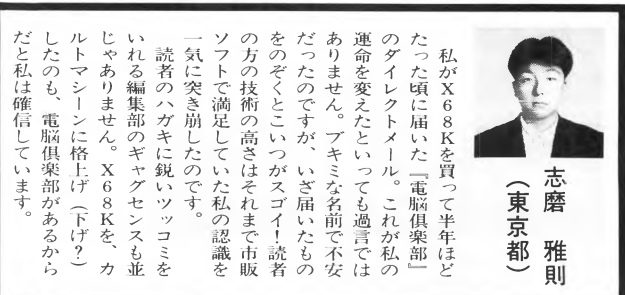 志磨　雅則
（東京都）
　私がX68Kを買って半年ほど
たった頃に届いた『電脳倶楽部』
のダイレクトメール。これが私の
運命を変えたといっても過言では
ありません。ブキミな名前で不安
だったのですが、いざ届いたもの
をのぞくとこいつがスゴイ！読者
の方の技術の高さはそれまで市販
ソフトで満足していた私の認識を
一気に突き崩したのです。
　読者のハガキに鋭いツッコミを
いれる編集部のギャグセンスも並
じゃありません。X68Kを、カ
ルトマシーンに格上げ（下げ？）
したのも、電脳倶楽部があるから
だと私は確信しています。